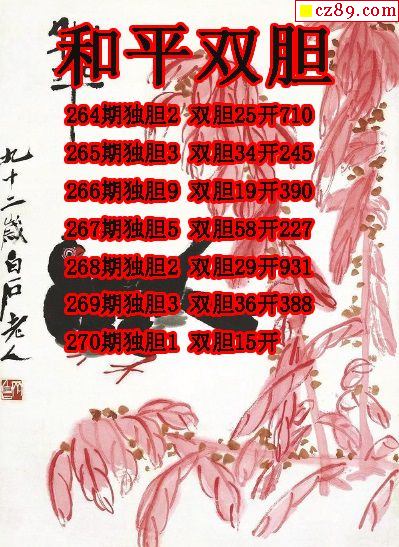 cz89.com
和平双胆
264期独胆2 双胆25开710
265期独胆3 双胆34开245
266期独胆9 双胆19开390
267期独胆5 双胆58开227
268期独胆2 双胆29开931
269期独胆3 双胆36开388
270期独胆1 双胆15开
九十二岁白石老人